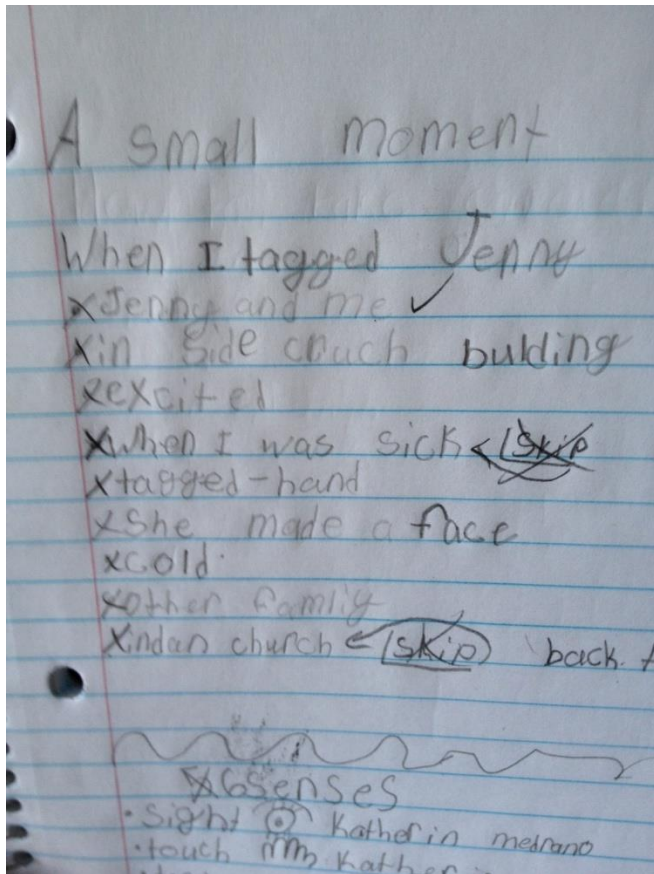 A small moment
When I tagged Jenny
xJenny and me ✓
xin side cruch bulding
xexcited
xWhen I was sick < skip
xtagged-hand
xShe made a face
xcold.
xother famliy
xindan church < skip back
x6senses
• sight Katherin medrano
• touch Kather